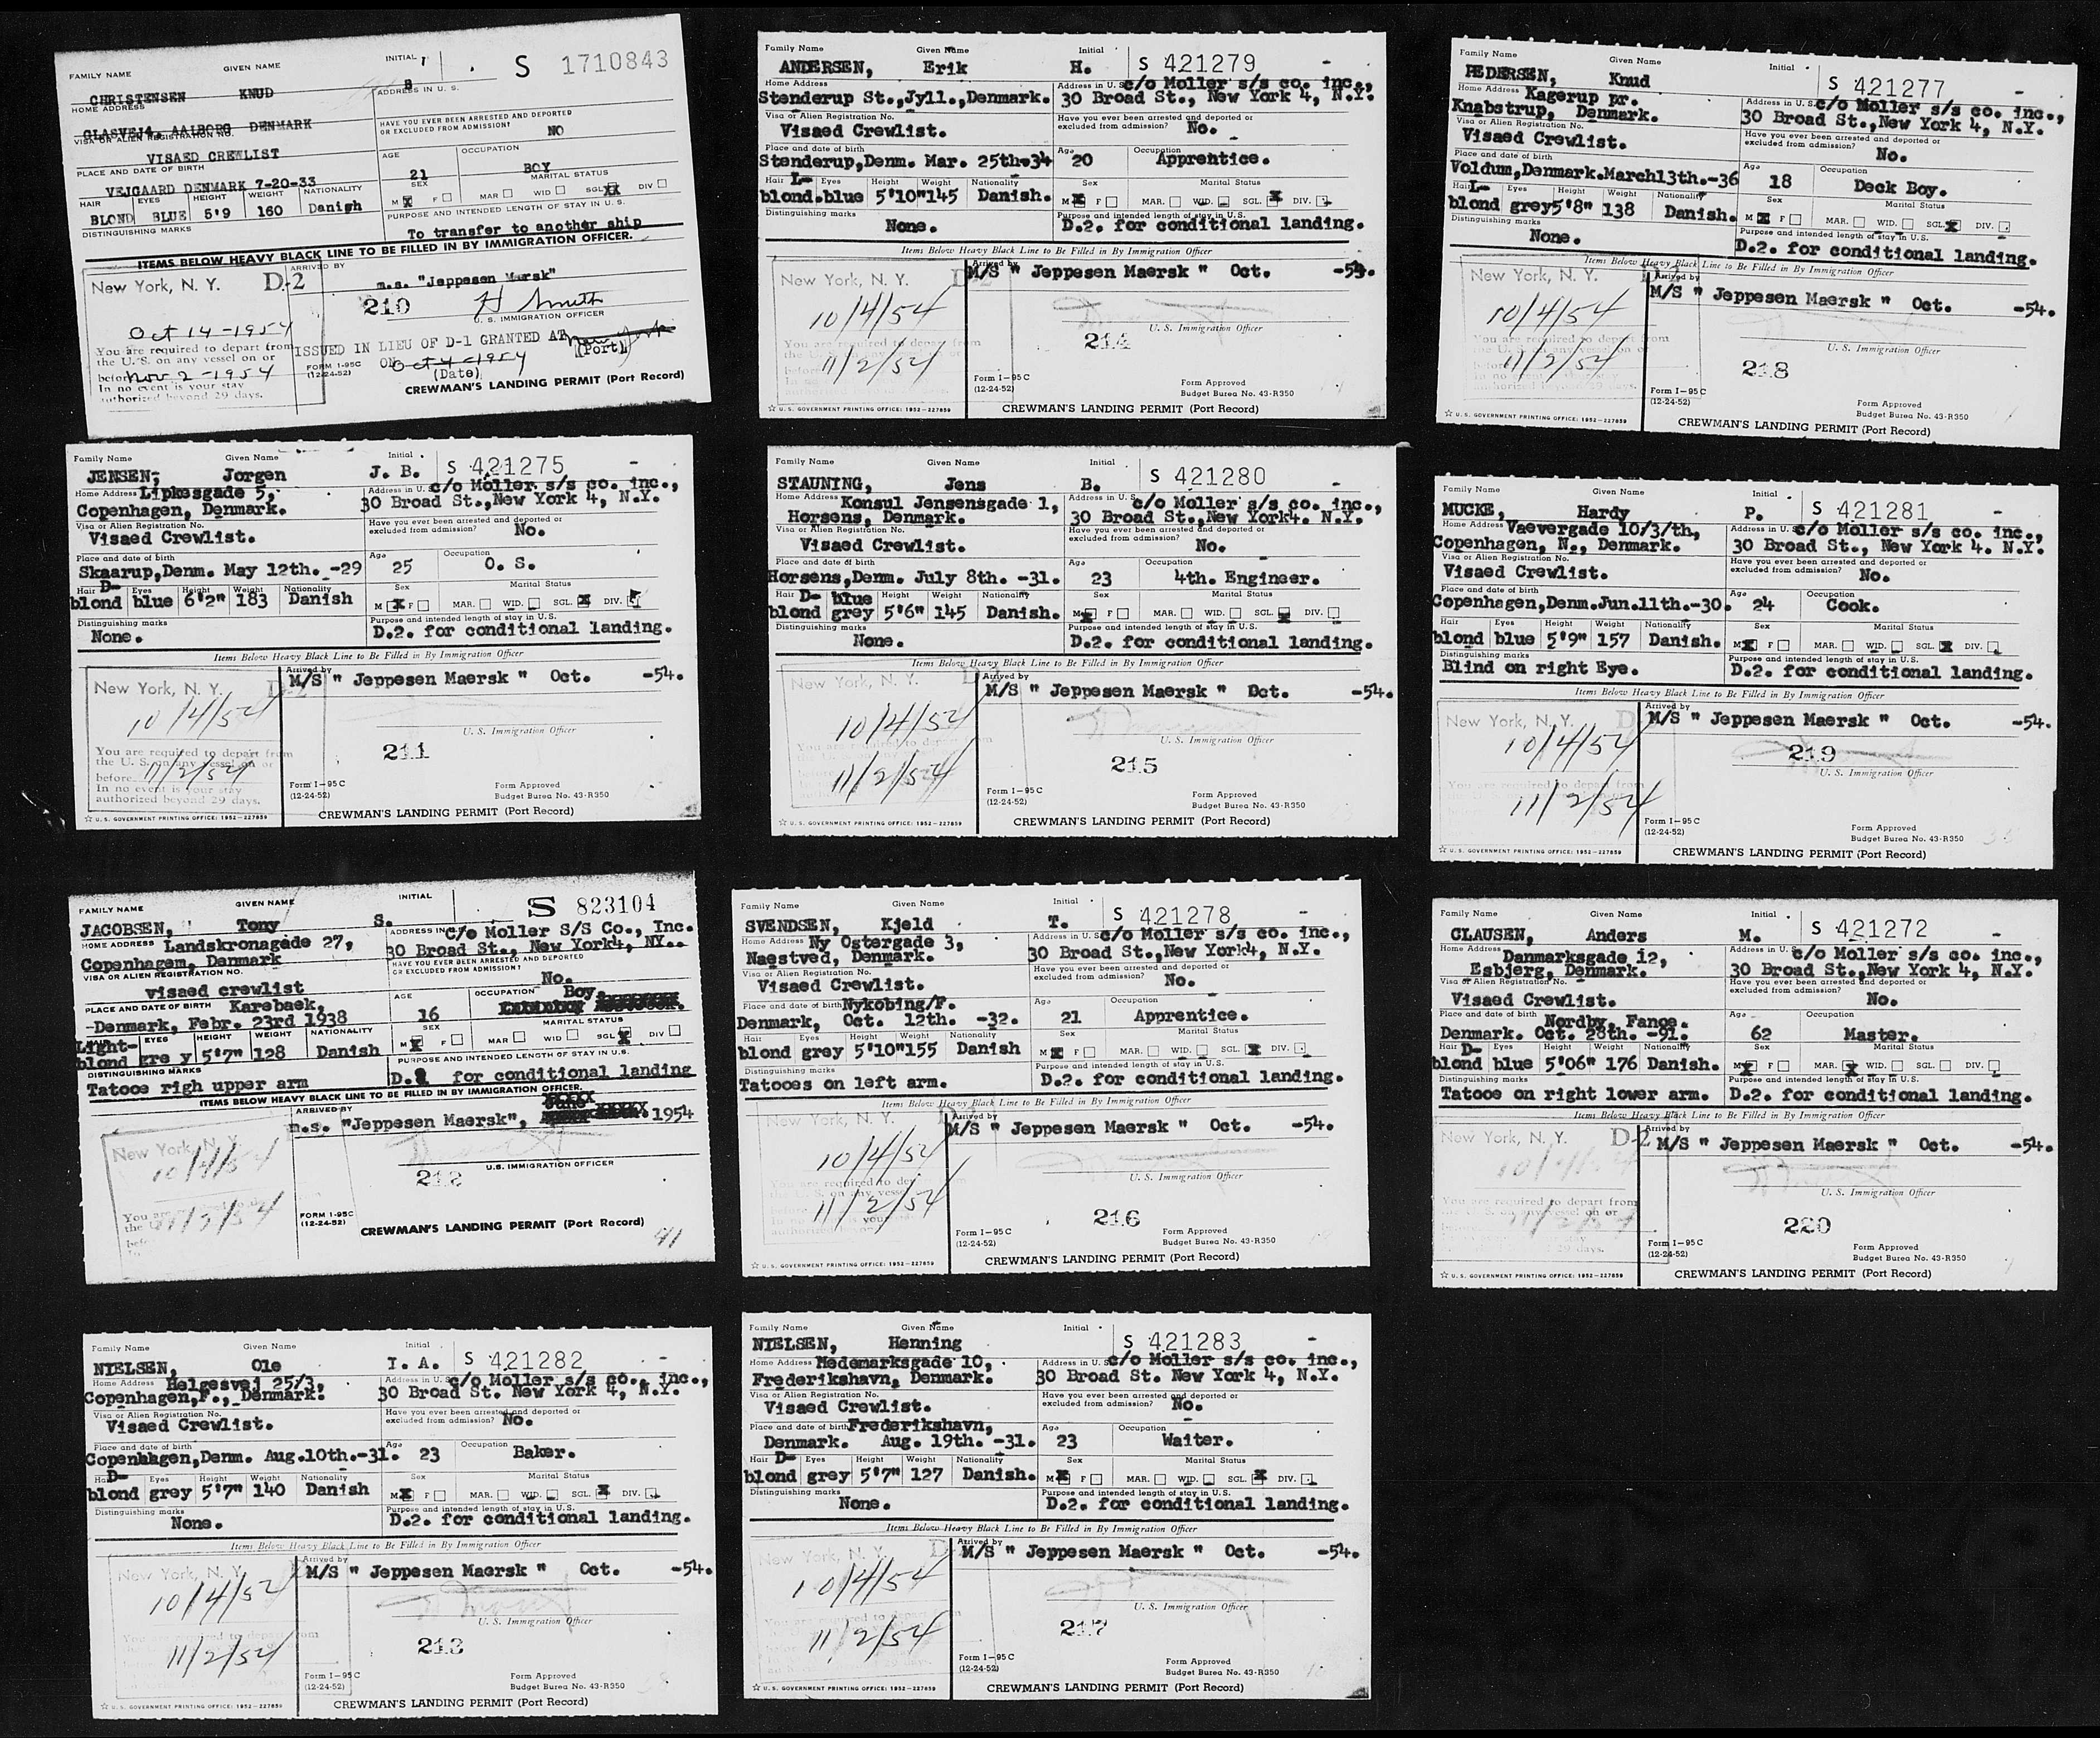 FAMILY NAME GIVEN NAME INITIAL S 1710843
CHRISTENSEN KNUD B
HOME ADDRESS ADDRESS IN U. S.
GLASVEJ4, AALBORG DENMARK
VISA OR ALIEN REGISTRATION NO. HAVE YOU EVER BEEN ARRESTED AND DEPORTED OR EXCLUDED FROM ADMISSION?
VISAED CREWLIST NO
PLACE AND DATE OF BIRTH AGE OCCUPATION
VEJGAARD DENMARK 7-20-33 21 BOY
HAIR EYES HEIGHT WEIGHT NATIONALITY SEX MARITAL STATUS
BLOND BLUE 5'9 160 Danish M X F MAR WID SGL XX DIV
DISTINGUISHING MARKS PURPOSE AND INTENDED LENGTH OF STAY IN U. S.
To transfer to another ship
ITEMS BELOW HEAVY BLACK LINE TO BE FILLED IN BY IMMIGRATION OFFICER.
New York, N. Y. D-2 ARRIVED BY
m.s. "Jeppesen Mærsk"
210 H Smith
U. S. IMMIGRATION OFFICER
Oct 14-1954
You are required to depart from
the U. S. on any vessel on or
before Nov 2-1954
In no event is your stay
authorized beyond 29 days.
ISSUED IN LIEU OF D-1 GRANTED AT New York
(Port)
ON Oct 4-1954
(Date)
FORM 1-95C
(12-24-52)
CREWMAN'S LANDING PERMIT (Port Record)
Family Name Given Name Initial S 421279 -
ANDERSEN, Erik H.
Home Address Address in U. S. c/o Moller s/s co. inc.,
Stenderup St.,Jyll.,Denmark. 30 Broad St., New York 4, N.Y.
Visa or Alien Registration No. Have you ever been arrested and deported or excluded from admission?
Visaed Crewlist. No.
Place and date of birth Age Occupation
Stenderup,Denm. Mar. 25th.-34 20 Apprentice.
Hair L- Eyes Height Weight Nationality Sex Marital Status
blond.blue 5'10"145 Danish. M X F MAR. WID. SGL. X DIV.
Distinguishing marks Purpose and intended length of stay in U.S.
None. D.2. for conditional landing.
Items Below Heavy Black Line to Be Filled in By Immigration Officer
New York, N. Y. D-2 Arrived by
M/S " Jeppesen Maersk " Oct. -54.
10/4/54
11/2/54
214
U. S. Immigration Officer
Form I-95C
(12-24-52)
Form Approved
Budget Burea No. 43-R350
☆ U. S. GOVERNMENT PRINTING OFFICE: 1952-227859
CREWMAN'S LANDING PERMIT (Port Record)
Family Name Given Name Initial S 421277 -
PEDERSEN, Knud
Home Address Kagerup pr. Address in U. S. c/o Moller s/s co. inc.,
Knabstrup, Denmark. 30 Broad St.,New York 4, N.Y.
Visa or Alien Registration No. Have you ever been arrested and deported or excluded from admission?
Visaed Crewlist. No.
Place and date of birth Age Occupation
Voldum,Denmark.March13th.-36 18 Deck Boy.
Hair L- Eyes Height Weight Nationality Sex Marital Status
blond grey5'8" 138 Danish. M X F MAR. WID. SGL. X DIV.
Distinguishing marks Purpose and intended length of stay in U.S.
None. D.2. for conditional landing.
Items Below Heavy Black Line to Be Filled in By Immigration Officer
New York, N. Y. D-2 Arrived by
M/S " Jeppesen Maersk " Oct. -54.
10/4/54
11/2/54
218
U. S. Immigration Officer
Form I-95C
(12-24-52)
Form Approved
Budget Burea No. 43-R350
☆ U. S. GOVERNMENT PRINTING OFFICE: 1952-227859
CREWMAN'S LANDING PERMIT (Port Record)
Family Name Given Name Initial S 421275 -
JENSEN, Jorgen J. B.
Home Address Lipkesgade 5, Address in U. S. c/o Moller s/s co. inc.,
Copenhagen, Denmark. 30 Broad St.,New York 4, N.Y.
Visa or Alien Registration No. Have you ever been arrested and deported or excluded from admission?
Visaed Crewlist. No.
Place and date of birth Age Occupation
Skaarup,Denm. May 12th. -29 25 O. S.
Hair D- Eyes Height Weight Nationality Sex Marital Status
blond blue 6'2" 183 Danish M X F MAR. WID. SGL. X DIV.
Distinguishing marks Purpose and intended length of stay in U.S.
None. D.2. for conditional landing.
Items Below Heavy Black Line to Be Filled in By Immigration Officer
New York, N. Y. D-2 Arrived by
M/S " Jeppesen Maersk " Oct. -54.
10/4/54
You are required to depart from
the U. S. on any vessel on or
before 11/2/54
In no event is your stay
authorized beyond 29 days.
211
U. S. Immigration Officer
Form I-95C
(12-24-52)
Form Approved
Budget Burea No. 43-R350
☆ U. S. GOVERNMENT PRINTING OFFICE: 1952-227859
CREWMAN'S LANDING PERMIT (Port Record)
Family Name Given Name Initial S 421280 -
STAUNING, Jens B.
Home Address Konsul Jensensgade 1, Address in U. S. c/o Moller s/s co. inc.,
Horsens, Denmark. 30 Broad St.,New York4. N.Y.
Visa or Alien Registration No. Have you ever been arrested and deported or excluded from admission?
Visaed Crewlist. No.
Place and date of birth Age Occupation
Horsens,Denm. July 8th. -31. 23 4th. Engineer.
Hair D- Eyes blue Height Weight Nationality Sex Marital Status
blond grey 5'6" 145 Danish. M X F MAR. WID. SGL. X DIV.
Distinguishing marks Purpose and intended length of stay in U.S.
None. D.2. for conditional landing.
Items Below Heavy Black Line to Be Filled in By Immigration Officer
New York, N. Y. Arrived by
M/S " Jeppesen Maersk " Oct. -54.
10/4/54
11/2/54
215
U. S. Immigration Officer
Form I-95C
(12-24-52)
Form Approved
Budget Burea No. 43-R350
☆ U. S. GOVERNMENT PRINTING OFFICE: 1952-227859
CREWMAN'S LANDING PERMIT (Port Record)
Family Name Given Name Initial S 421281 -
MUCKE, Hardy P.
Home Address Vaevergade 10/3/th, Address in U. S. c/o Moller s/s co. inc.,
Copenhagen, N., Denmark. 30 Broad St., New York 4. N.Y.
Visa or Alien Registration No. Have you ever been arrested and deported or excluded from admission?
Visaed Crewlist. No.
Place and date of birth Age Occupation
Copenhagen,Denm.Jun.11th.-30. 24 Cook.
Hair Eyes Height Weight Nationality Sex Marital Status
blond blue 5'9" 157 Danish. M X F MAR. WID. SGL. X DIV.
Distinguishing marks Purpose and intended length of stay in U.S.
Blind on right Eye. D.2. for conditional landing.
Items Below Heavy Black Line to Be Filled in By Immigration Officer
New York, N. Y. Arrived by
M/S " Jeppesen Maersk " Oct. -54.
10/4/54
11/2/54
219
U. S. Immigration Officer
Form I-95C
(12-24-52)
Form Approved
Budget Burea No. 43-R350
☆ U. S. GOVERNMENT PRINTING OFFICE: 1952-227859
CREWMAN'S LANDING PERMIT (Port Record)
FAMILY NAME GIVEN NAME INITIAL S 823104
JACOBSEN, Tony S.
HOME ADDRESS Landskronagade 27, ADDRESS IN U. S. c/o Moller S/S Co., Inc.
Copenhagen, Denmark 30 Broad St., New York4, NY..
VISA OR ALIEN REGISTRATION NO. HAVE YOU EVER BEEN ARRESTED AND DEPORTED OR EXCLUDED FROM ADMISSION?
visaed crewlist No.
PLACE AND DATE OF BIRTH Karebaek, AGE OCCUPATION Boy
-Denmark, Febr. 23rd 1938 16
EYES HEIGHT WEIGHT NATIONALITY SEX MARITAL STATUS
Light-blond gre y 5'7" 128 Danish M X F MAR WID SGL X DIV
DISTINGUISHING MARKS PURPOSE AND INTENDED LENGTH OF STAY IN U.S.
Tatooe righ upper arm D.2 for conditional landing
ITEMS BELOW HEAVY BLACK LINE TO BE FILLED IN BY IMMIGRATION OFFICER.
ARRIVED BY
m.s. "Jeppesen Maersk", 1954
New York, N. Y.
10/4/54
11/2/54
212
U.S. IMMIGRATION OFFICER
FORM 1-95C
(12-24-52)
CREWMAN'S LANDING PERMIT (Port Record)
41
Family Name Given Name Initial S 421278 -
SVENDSEN, Kjeld T.
Home Address Ny Ostergade 3, Address in U. S. c/o Moller s/s co. inc.,
Naestved, Denmark. 30 Broad St.,New York4, N.Y.
Visa or Alien Registration No. Have you ever been arrested and deported or excluded from admission?
Visaed Crewlist. No.
Place and date of birth Nykobing/F. Age Occupation
Denmark, Oct. 12th. -32. 21 Apprentice.
Hair Eyes Height Weight Nationality Sex Marital Status
blond grey 5'10"155 Danish M X F MAR. WID. SGL. X DIV.
Distinguishing marks Purpose and intended length of stay in U.S.
Tatooes on left arm. D.2. for conditional landing.
Items Below Heavy Black Line to Be Filled in By Immigration Officer
New York, N. Y. Arrived by
M/S " Jeppesen Maersk " Oct. -54.
10/4/54
11/2/54
216
U. S. Immigration Officer
Form I-95C
(12-24-52)
Form Approved
Budget Burea No. 43-R350
☆ U. S. GOVERNMENT PRINTING OFFICE: 1952-227859
CREWMAN'S LANDING PERMIT (Port Record)
Family Name Given Name Initial S 421272 -
CLAUSEN, Anders M.
Home Address Danmarksgade 12, Address in U. S. c/o Moller s/s co. inc.,
Esbjerg, Denmark. 30 Broad St.,New York 4, N.Y.
Visa or Alien Registration No. Have you ever been arrested and deported or excluded from admission?
Visaed Crewlist. No.
Place and date of birth Nordby, Fanoe. Age Occupation
Denmark. Oct. 28th. -91. 62 Master.
Hair D- Eyes Height Weight Nationality Sex Marital Status
blond blue 5'06" 176 Danish. M X F MAR. X WID. SGL. DIV.
Distinguishing marks Purpose and intended length of stay in U.S.
Tatooe on right lower arm. D.2. for conditional landing.
Items Below Heavy Black Line to Be Filled in By Immigration Officer
New York, N. Y. D-2 Arrived by
M/S " Jeppesen Maersk " Oct. -54.
10/4/54
You are required to depart from
the U. S. on any vessel on or
before 11/2/54
220
U. S. Immigration Officer
Form I-95C
(12-24-52)
Form Approved
Budget Burea No. 43-R350
☆ U. S. GOVERNMENT PRINTING OFFICE: 1952-227859
CREWMAN'S LANDING PERMIT (Port Record)
Family Name Given Name Initial S 421282 -
NIELSEN, Ole I. A.
Home Address Helgesvej 25/3, Address in U. S. c/o Moller s/s co., inc.,
Copenhagen,F., Denmark. 30 Broad St. New York 4, N.Y.
Visa or Alien Registration No. Have you ever been arrested and deported or excluded from admission?
Visaed Crewlist. No.
Place and date of birth Age Occupation
Copenhagen,Denm. Aug.10th.-31. 23 Baker.
Hair D- Eyes Height Weight Nationality Sex Marital Status
blond grey 5'7" 140 Danish M X F MAR. WID. SGL. X DIV.
Distinguishing marks Purpose and intended length of stay in U.S.
None. D.2. for conditional landing.
Items Below Heavy Black Line to Be Filled in By Immigration Officer
New York, N. Y. Arrived by
M/S " Jeppesen Maersk " Oct. -54.
10/4/54
11/2/54
213
U. S. Immigration Officer
Form I-95C
(12-24-52)
Form Approved
Budget Burea No. 43-R350
☆ U. S. GOVERNMENT PRINTING OFFICE: 1952-227859
CREWMAN'S LANDING PERMIT (Port Record)
Family Name Given Name Initial S 421283 -
NIELSEN, Henning
Home Address Medemarksgade 10, Address in U. S. c/o Moller s/s co. inc.,
Frederikshavn, Denmark. 30 Broad St. New York 4, N.Y.
Visa or Alien Registration No. Have you ever been arrested and deported or excluded from admission?
Visaed Crewlist. No.
Place and date of birth Frederikshavn, Age Occupation
Denmark. Aug. 19th. -31. 23 Waiter.
Hair D- Eyes Height Weight Nationality Sex Marital Status
blond grey 5'7" 127 Danish. M X F MAR. WID. SGL. X DIV.
Distinguishing marks Purpose and intended length of stay in U.S.
None. D.2. for conditional landing.
Items Below Heavy Black Line to Be Filled in By Immigration Officer
New York, N. Y. Arrived by
M/S " Jeppesen Maersk " Oct. -54.
10/4/54
11/2/54
217
U. S. Immigration Officer
Form I-95C
(12-24-52)
Form Approved
Budget Burea No. 43-R350
☆ U. S. GOVERNMENT PRINTING OFFICE: 1952-227859
CREWMAN'S LANDING PERMIT (Port Record)